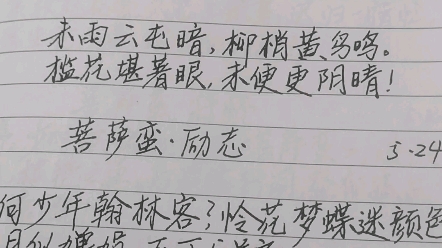 未雨云屯暗,柳梢黄鸟鸣。
槛花堪着眼,未便更阴晴!
菩萨蛮·励志 5·24
何少年翰林客?怜花梦蝶迷颜色